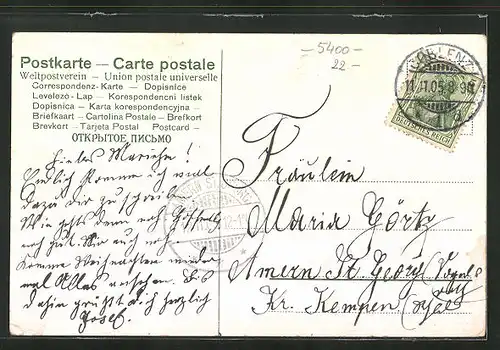 Postkarte — Carte postale
Weltpostverein — Union postale universelle
Correspondenz-Karte — Dopisnice
Levelező-Lap — Korespondencni listek
Dopisnica — Karta korespondencyjna
Briefkaart — Cartolina Postale — Brefkort
Brevkort — Tarjeta Postal Postcard —
ОТКРЫТОЕ ПИСЬМО
— 5400 —
22 —
COBLENZ
11.11.05. 8-9
DEUTSCHES REICH
Liebes Mariechen!
Endlich komme ich mal
dazu dir zu schreiben.
Wie geht's denn noch
noch gut. Wir auch noch
komme Weihnachten wieder
mal Alles ansehen. Bis
dahin grüßt dich herzlich
Josef.
Fräulein
Maria Görtz
Amern St. Georg
Kr. Kempen